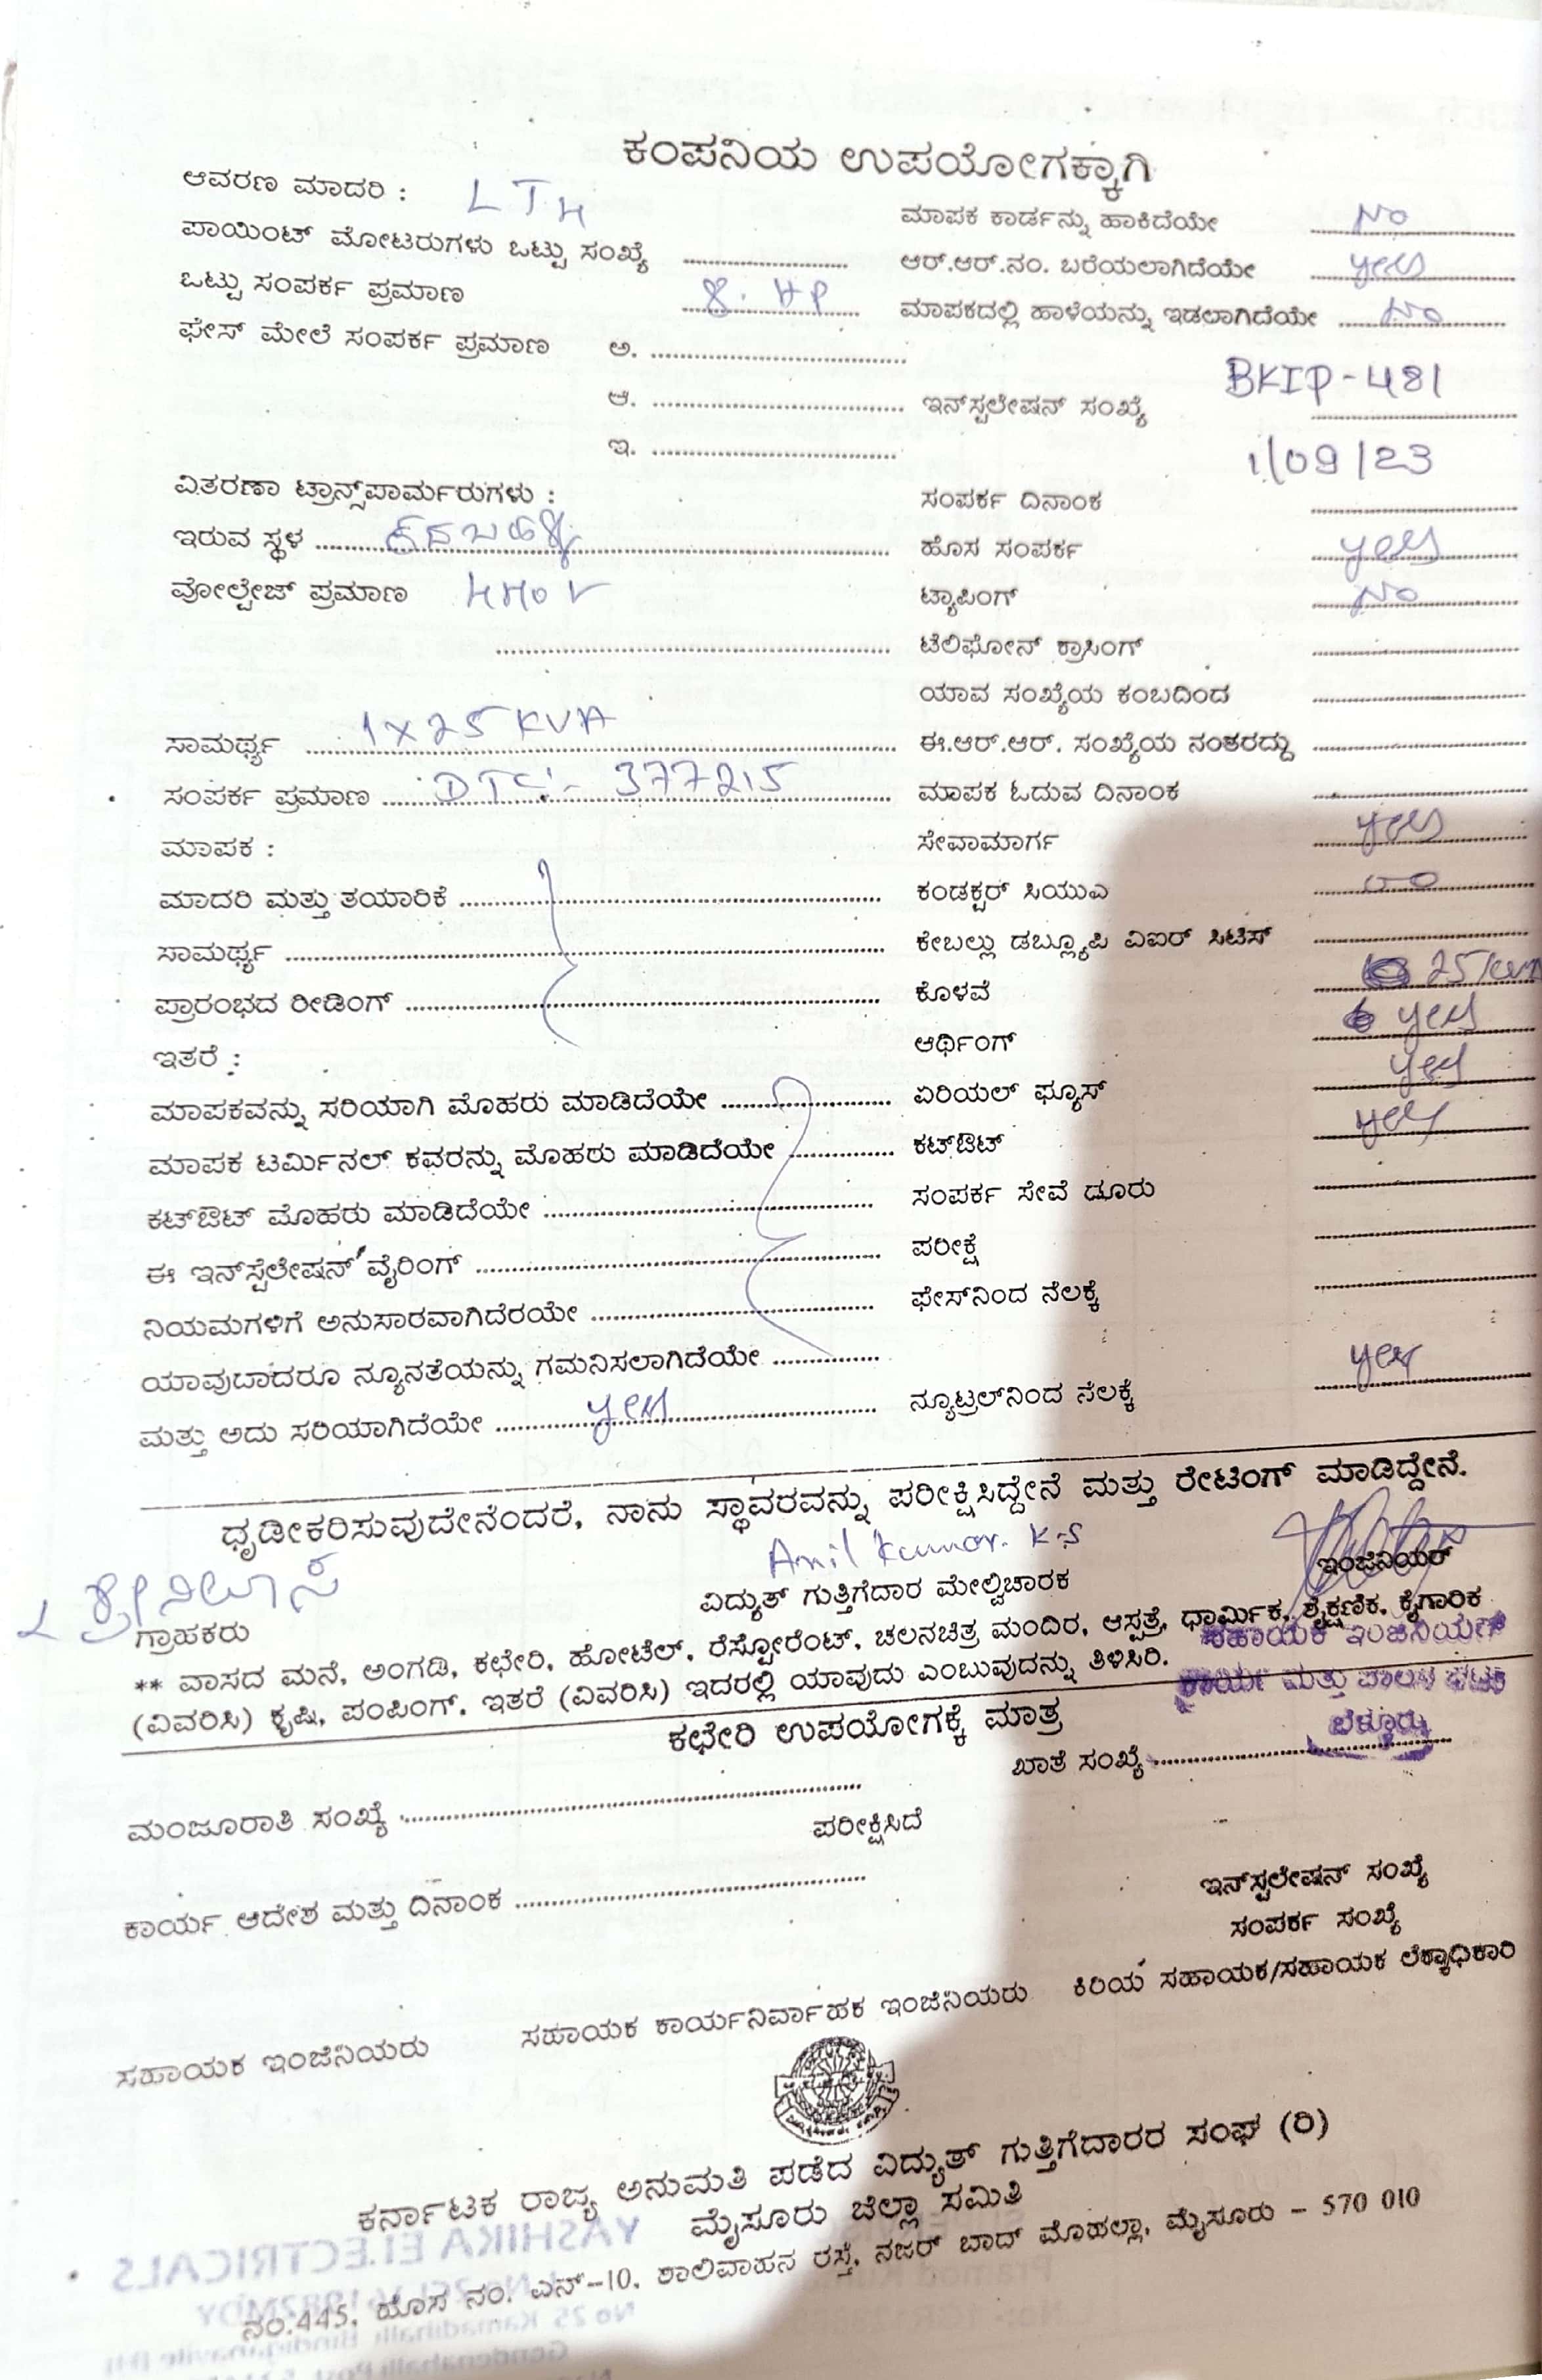 ಕಂಪನಿಯ ಉಪಯೋಗಕ್ಕಾಗಿ
ಆವರಣ ಮಾದರಿ : LT4
ಮಾಪಕ ಕಾರ್ಡನ್ನು ಹಾಕಿದೆಯೇ No
ಪಾಯಿಂಟ್ ಮೋಟರುಗಳು ಒಟ್ಟು ಸಂಖ್ಯೆ
ಆರ್.ಆರ್.ನಂ. ಬರೆಯಲಾಗಿದೆಯೇ yes
ಒಟ್ಟು ಸಂಪರ್ಕ ಪ್ರಮಾಣ 8. HP
ಮಾಪಕದಲ್ಲಿ ಹಾಳೆಯನ್ನು ಇಡಲಾಗಿದೆಯೇ No
ಫೇಸ್ ಮೇಲೆ ಸಂಪರ್ಕ ಪ್ರಮಾಣ ಅ.
ಆ.
ಇನ್‌ಸ್ಟಲೇಷನ್ ಸಂಖ್ಯೆ BKIP-481
ಇ.
ವಿತರಣಾ ಟ್ರಾನ್ಸ್‌ಪಾರ್ಮರುಗಳು :
ಸಂಪರ್ಕ ದಿನಾಂಕ 1/09/23
ಇರುವ ಸ್ಥಳ
ಹೊಸ ಸಂಪರ್ಕ yes
ವೋಲ್ಟೇಜ್ ಪ್ರಮಾಣ 440 V
ಟ್ಯಾಪಿಂಗ್ No
ಟೆಲಿಫೋನ್ ಕ್ರಾಸಿಂಗ್
ಯಾವ ಸಂಖ್ಯೆಯ ಕಂಬದಿಂದ
ಸಾಮರ್ಥ್ಯ 1 x 25 KVA
ಈ.ಆರ್.ಆರ್. ಸಂಖ್ಯೆಯ ನಂತರದ್ದು
ಸಂಪರ್ಕ ಪ್ರಮಾಣ DTC:- 377215
ಮಾಪಕ ಓದುವ ದಿನಾಂಕ
ಮಾಪಕ :
ಸೇವಾಮಾರ್ಗ yes
ಮಾದರಿ ಮತ್ತು ತಯಾರಿಕೆ
ಕಂಡಕ್ಟರ್ ಸಿಯುಎ
ಸಾಮರ್ಥ್ಯ
ಕೇಬಲ್ಲು ಡಬ್ಲ್ಯೂಪಿ ವಿಐರ್ ಸಿಟಿಸ್
ಪ್ರಾರಂಭದ ರೀಡಿಂಗ್
ಕೊಳವೆ 25
ಇತರೆ :
ಆರ್ಥಿಂಗ್ yes
ಮಾಪಕವನ್ನು ಸರಿಯಾಗಿ ಮೊಹರು ಮಾಡಿದೆಯೇ
ಏರಿಯಲ್ ಫ್ಯೂಸ್ yes
ಮಾಪಕ ಟರ್ಮಿನಲ್ ಕವರನ್ನು ಮೊಹರು ಮಾಡಿದೆಯೇ
ಕಟ್‌ಔಟ್ yes
ಕಟ್‌ಔಟ್ ಮೊಹರು ಮಾಡಿದೆಯೇ
ಸಂಪರ್ಕ ಸೇವೆ ಡೂರು
ಈ ಇನ್‌ಸ್ಟೆಲೇಷನ್ ವೈರಿಂಗ್
ಪರೀಕ್ಷೆ
ನಿಯಮಗಳಿಗೆ ಅನುಸಾರವಾಗಿದೆರಯೇ
ಫೇಸ್‌ನಿಂದ ನೆಲಕ್ಕೆ
ಯಾವುದಾದರೂ ನ್ಯೂನತೆಯನ್ನು ಗಮನಿಸಲಾಗಿದೆಯೇ
ಮತ್ತು ಅದು ಸರಿಯಾಗಿದೆಯೇ yes
ನ್ಯೂಟ್ರಲ್‌ನಿಂದ ನೆಲಕ್ಕೆ yes
ಧೃಡೀಕರಿಸುವುದೇನೆಂದರೆ, ನಾನು ಸ್ಥಾವರವನ್ನು ಪರೀಕ್ಷಿಸಿದ್ದೇನೆ ಮತ್ತು ರೇಟಿಂಗ್ ಮಾಡಿದ್ದೇನೆ.
ಶ್ರೀನಿವಾಸ
Anil Kumar. K.S
ಗ್ರಾಹಕರು
ವಿದ್ಯುತ್ ಗುತ್ತಿಗೆದಾರ ಮೇಲ್ವಿಚಾರಕ
ಇಂಜಿನಿಯರ್
** ವಾಸದ ಮನೆ, ಅಂಗಡಿ, ಕಛೇರಿ, ಹೋಟೆಲ್, ರೆಸ್ಟೋರೆಂಟ್, ಚಲನಚಿತ್ರ ಮಂದಿರ, ಆಸ್ಪತ್ರೆ, ಧಾರ್ಮಿಕ, ಶೈಕ್ಷಣಿಕ, ಕೈಗಾರಿಕ
(ವಿವರಿಸಿ) ಕೃಷಿ, ಪಂಪಿಂಗ್, ಇತರೆ (ವಿವರಿಸಿ) ಇದರಲ್ಲಿ ಯಾವುದು ಎಂಬುವುದನ್ನು ತಿಳಿಸಿರಿ.
ಸಹಾಯಕ ಇಂಜಿನಿಯರ್
ಕಾರ್ಯ ಮತ್ತು ಪಾಲನ ಘಟಕ
ಬೆಳ್ಳೂರು
ಕಛೇರಿ ಉಪಯೋಗಕ್ಕೆ ಮಾತ್ರ
ಮಂಜೂರಾತಿ ಸಂಖ್ಯೆ
ಖಾತೆ ಸಂಖ್ಯೆ
ಪರೀಕ್ಷಿಸಿದೆ
ಕಾರ್ಯ ಆದೇಶ ಮತ್ತು ದಿನಾಂಕ
ಇನ್‌ಸ್ಟಲೇಷನ್ ಸಂಖ್ಯೆ
ಸಂಪರ್ಕ ಸಂಖ್ಯೆ
ಸಹಾಯಕ ಇಂಜಿನಿಯರು
ಸಹಾಯಕ ಕಾರ್ಯನಿರ್ವಾಹಕ ಇಂಜಿನಿಯರು
ಕಿರಿಯ ಸಹಾಯಕ/ಸಹಾಯಕ ಲೆಕ್ಕಾಧಿಕಾರಿ
ಕರ್ನಾಟಕ ರಾಜ್ಯ ಅನುಮತಿ ಪಡೆದ ವಿದ್ಯುತ್ ಗುತ್ತಿಗೆದಾರರ ಸಂಘ (ರಿ)
ಮೈಸೂರು ಜಿಲ್ಲಾ ಸಮಿತಿ
YASHIKA ELECTRICALS
ನಂ.445, ಹೊಸ ನಂ. ಎನ್-10, ಶಾಲಿವಾಹನ ರಸ್ತೆ, ನಜರ್ ಬಾದ್ ಮೊಹಲ್ಲಾ, ಮೈಸೂರು - 570 010